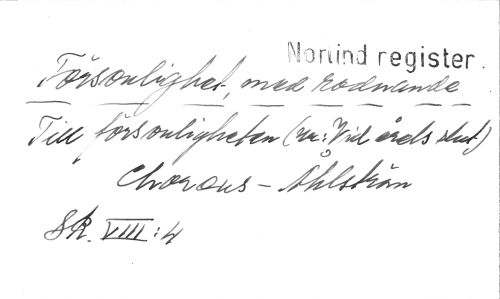 Norlind register.
Försonlighet, med rodnande
Till försonligheten (ur: Vid årets slut.)
Choræus - Åhlström
SK. VIII: 4